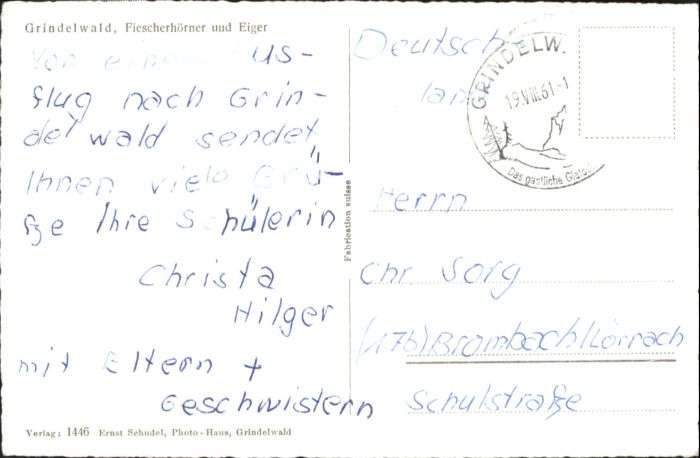 Grindelwald, Fiescherhörner und Eiger
Von einem Aus-
flug nach Grin-
delwald sendet
Ihnen viele Grü-
ße Ihre Schülerin
Christa
Hilger
mit Eltern +
Geschwistern
Verlag: 1446 Ernst Schudel, Photo-Haus, Grindelwald
Fabrication suisse
Deutsch
lan
GRINDELW.
19.VIII.61-1
Das gastliche
Herrn
Chr. Sorg
(17b) Brombach/Lörrach
Schulstraße